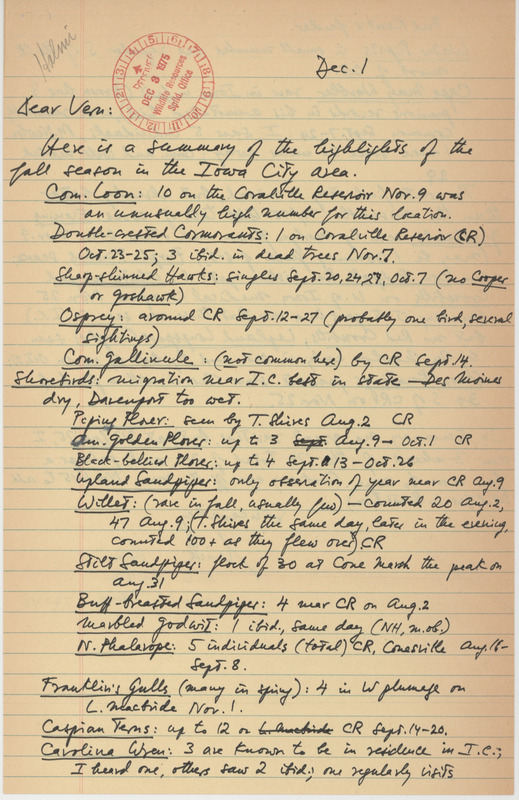 Halmi
RECEIVED
DEC 8 1975
Wildlife Resources
Spfld. Office
Dec. 1
Dear Vern:
Here is a summary of the highlights of the
fall season in the Iowa City area.
Com. Loon: 10 on the Coralville Reservoir Nov. 9 was
an unusually high number for this location.
Double-crested Cormorants: 1 on Coralville Reservoir (CR)
Oct. 23-25; 3 ibid. in dead trees Nov. 7.
Sharp-shinned Hawks: singles Sept. 20, 24, 27, Oct. 7 (no Cooper
or goshawk)
Osprey: around CR Sept. 12-27 (probably one bird, several
sightings)
Com. gallinule: (not common here) by CR Sept. 14.
Shorebirds: migration near I.C. best in state - Des Moines
dry, Davenport too wet.
Piping Plover: seen by T. Shires Aug. 2 CR
Am. golden Plover: up to 3 Sept. Aug. 9 - Oct. 1 CR
Black-bellied Plover: up to 4 Sept. 13 - Oct. 26
Upland Sandpiper: only observation of year near CR Aug. 9
Willet: (rare in fall, usually few) - counted 20 Aug. 2,
47 Aug. 9; (T. Shires the same day, later in the evening,
counted 100+ as they flew over) CR
Stilt Sandpiper: flock of 30 at Cone Marsh the peak on
Aug. 31
Buff-breasted Sandpiper: 4 near CR on Aug. 2
Marbled godwit: 1 ibid., same day (NH, m.ob.)
N. Phalarope: 5 individuals (total) CR, Conesville Aug. 16-
Sept. 8.
Franklin's Gulls (many in spring): 4 in W plumage on
L. Macbride Nov. 1.
Caspian Terns: up to 12 on L. Macbride CR Sept. 14-20.
Carolina Wren: 3 are known to be in residence in I.C.;
I heard one, others saw 2 ibid.; one regularly visits